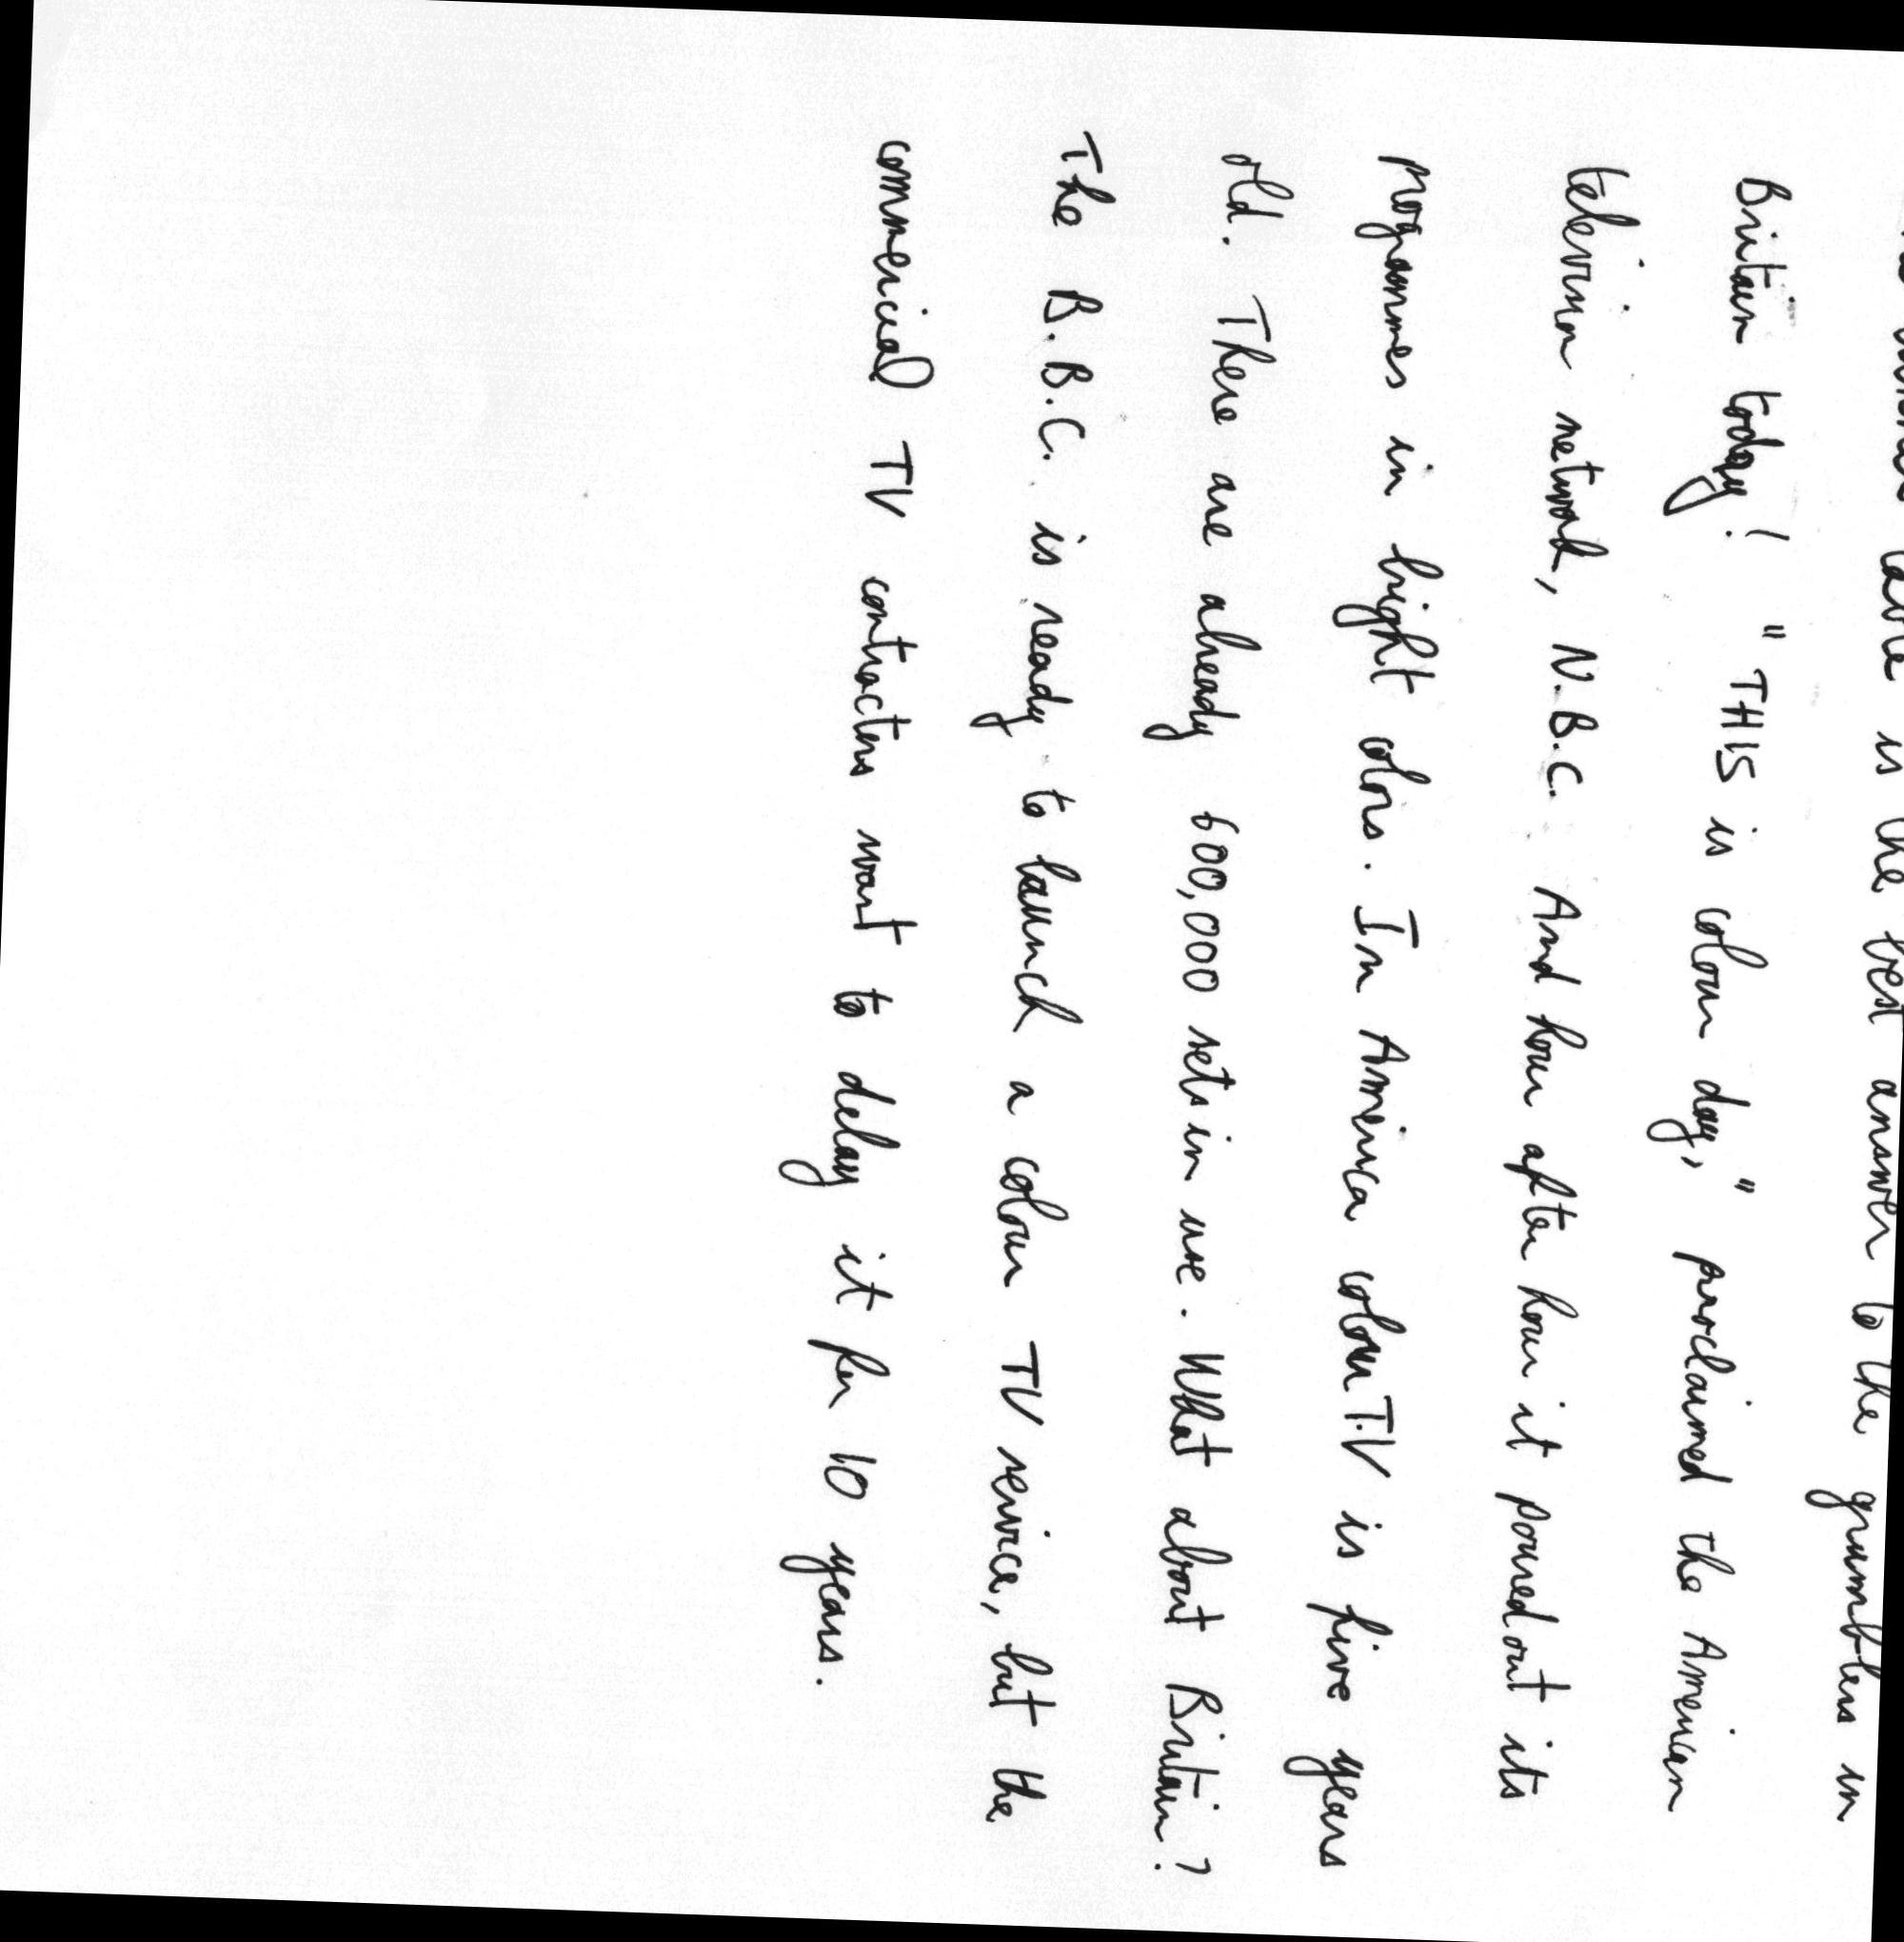 table is the best answer to the grumblers in
Britain today! "THIS is colour day," proclaimed the American
television network, N.B.C. And hour after hour it poured out its
programmes in bright colors. In America colour T.V is five years
old. There are already 600,000 sets in use. What about Britain?
The B.B.C. is ready to launch a colour TV service, but the
commercial TV contractors want to delay it for 10 years.